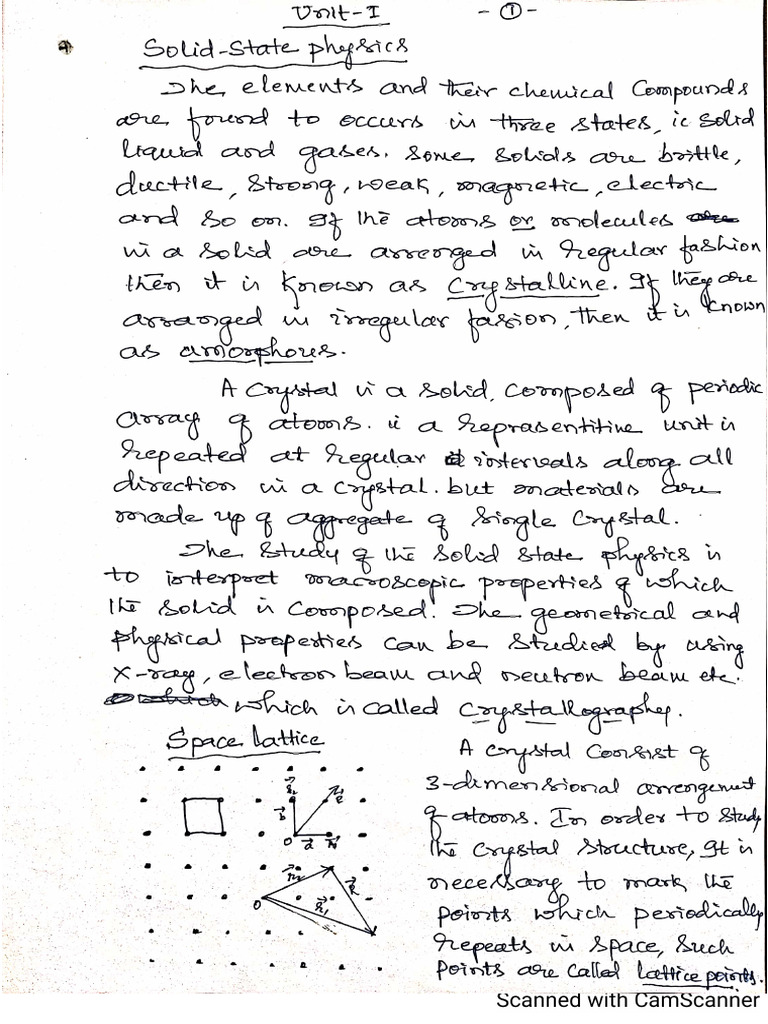 Unit-I -①-
Solid-State physics
The elements and their chemical Compounds
are found to occurs in three states, ie solid
liquid and gases. Some solids are brittle,
ductile, strong, weak, magnetic, electric
and so on. If the atoms or molecules
in a solid are arrenged in regular fashion
then it is known as Crystalline. If they are
arranged in irregular fasion, then it is known
as amorphous.
A crystal is a solid, composed of periodic
array of atoms. ie a reprasentitive unit is
repeated at regular intervals along all
direction in a crystal. but materials are
made up of aggregate of single crystal.
The study of the solid state physics is
to interpret macroscopic properties of which
the solid is composed. The geometrical and
physical properties can be studied by using
X-ray, electron beam and neutron beam etc.
which is called crystallography.
Space lattice
A crystal consist of
3-dimensional arrengement
of atoms. In order to study
the crystal structure, It is
necessary to mark the
points which periodically
repeats in space, such
points are called lattice points.
b
R
O a
O
R
Scanned with CamScanner